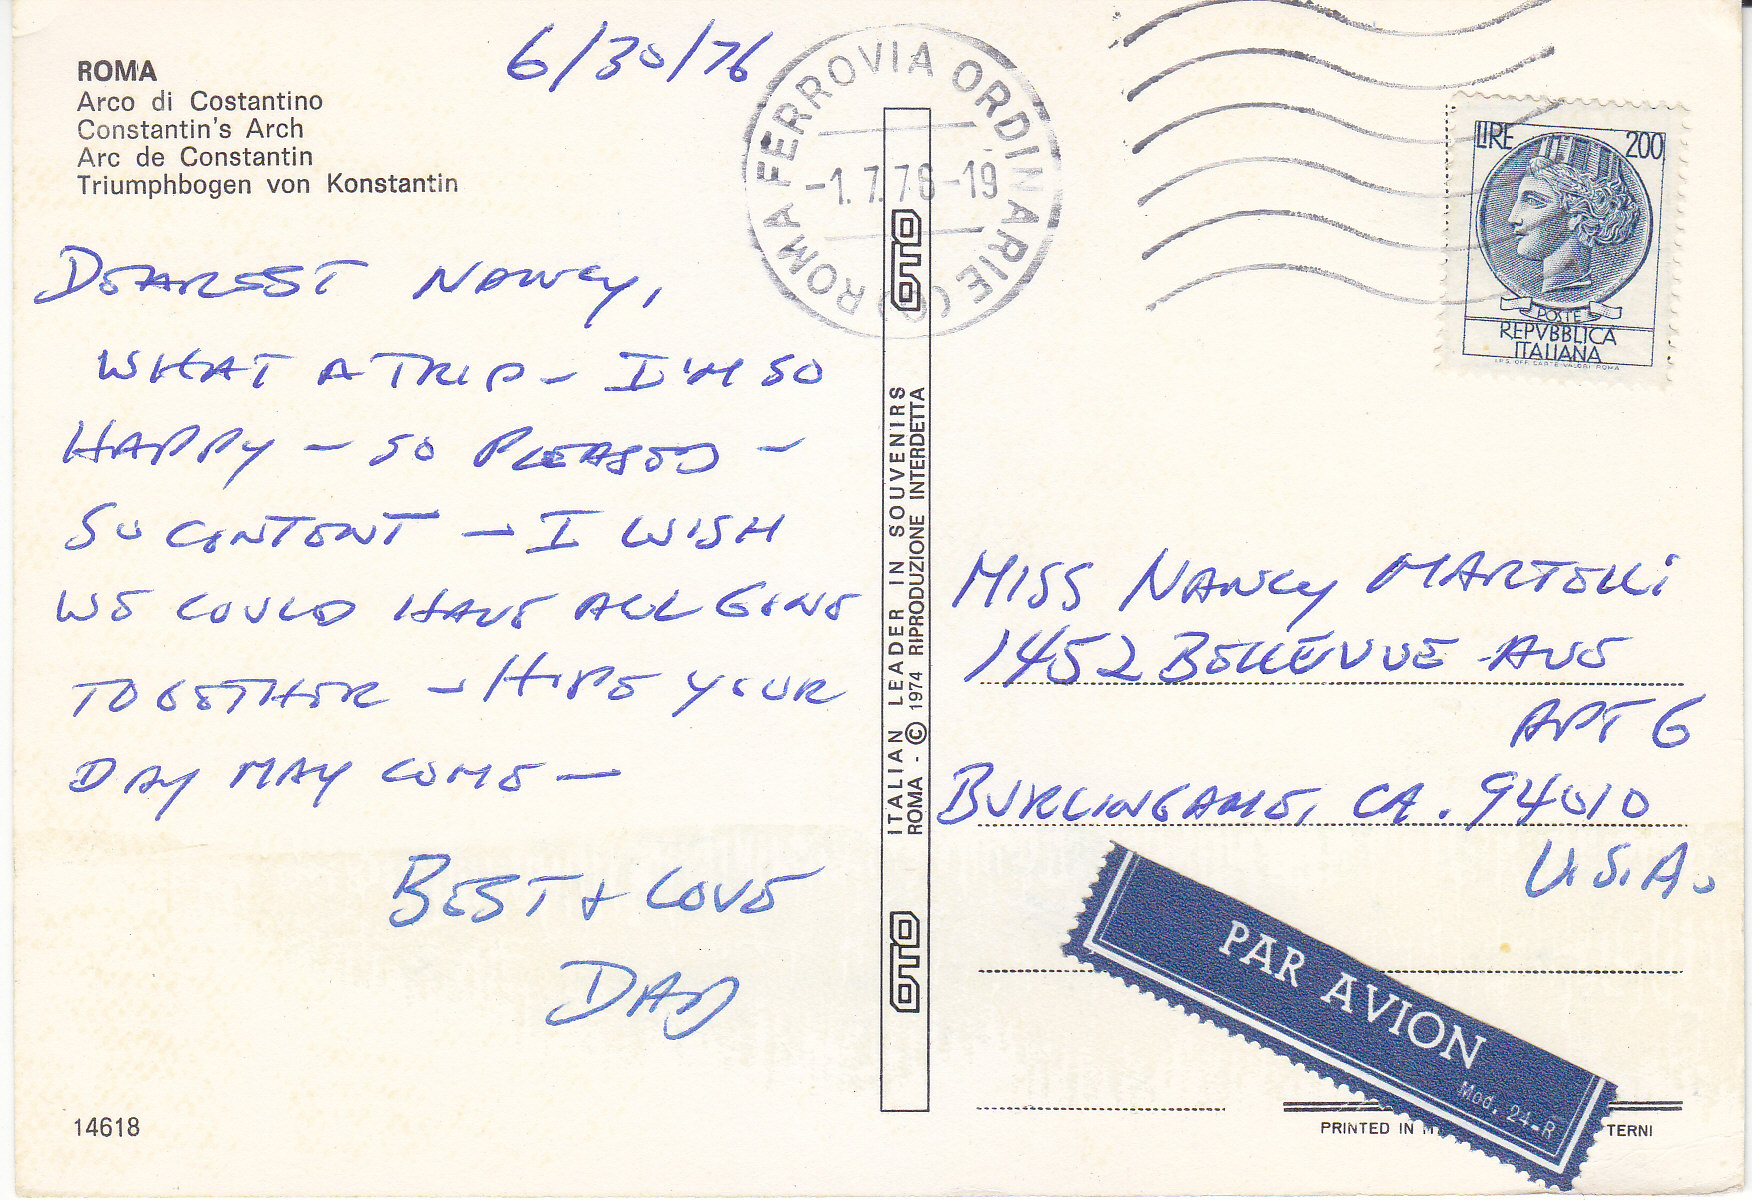 ROMA
Arco di Costantino
Constantin's Arch
Arc de Constantin
Triumphbogen von Konstantin
6/30/76
DEAREST NANCY,
WHAT A TRIP - I'M SO
HAPPY - SO PLEASED -
SO CONTENT - I WISH
WE COULD HAVE ALL GONE
TOGETHER - HOPE YOUR
DAY MAY COME -
BEST & LOVE
DAD
14618
ROMA FERROVIA ORDINARIE
-1.7.76-19
OTO
ITALIAN LEADER IN SOUVENIRS
ROMA - © 1974 RIPRODUZIONE INTERDETTA
OTO
LIRE 200
POSTE
REPVBBLICA
ITALIANA
I.P.S. OFF. CARTE VALORI ROMA
MISS NANCY MARTELLI
1452 BELLEVUE AVE
APT 6
BURLINGAME, CA. 94010
U.S.A.
PAR AVION
Mod. 24-R
PRINTED IN
TERNI